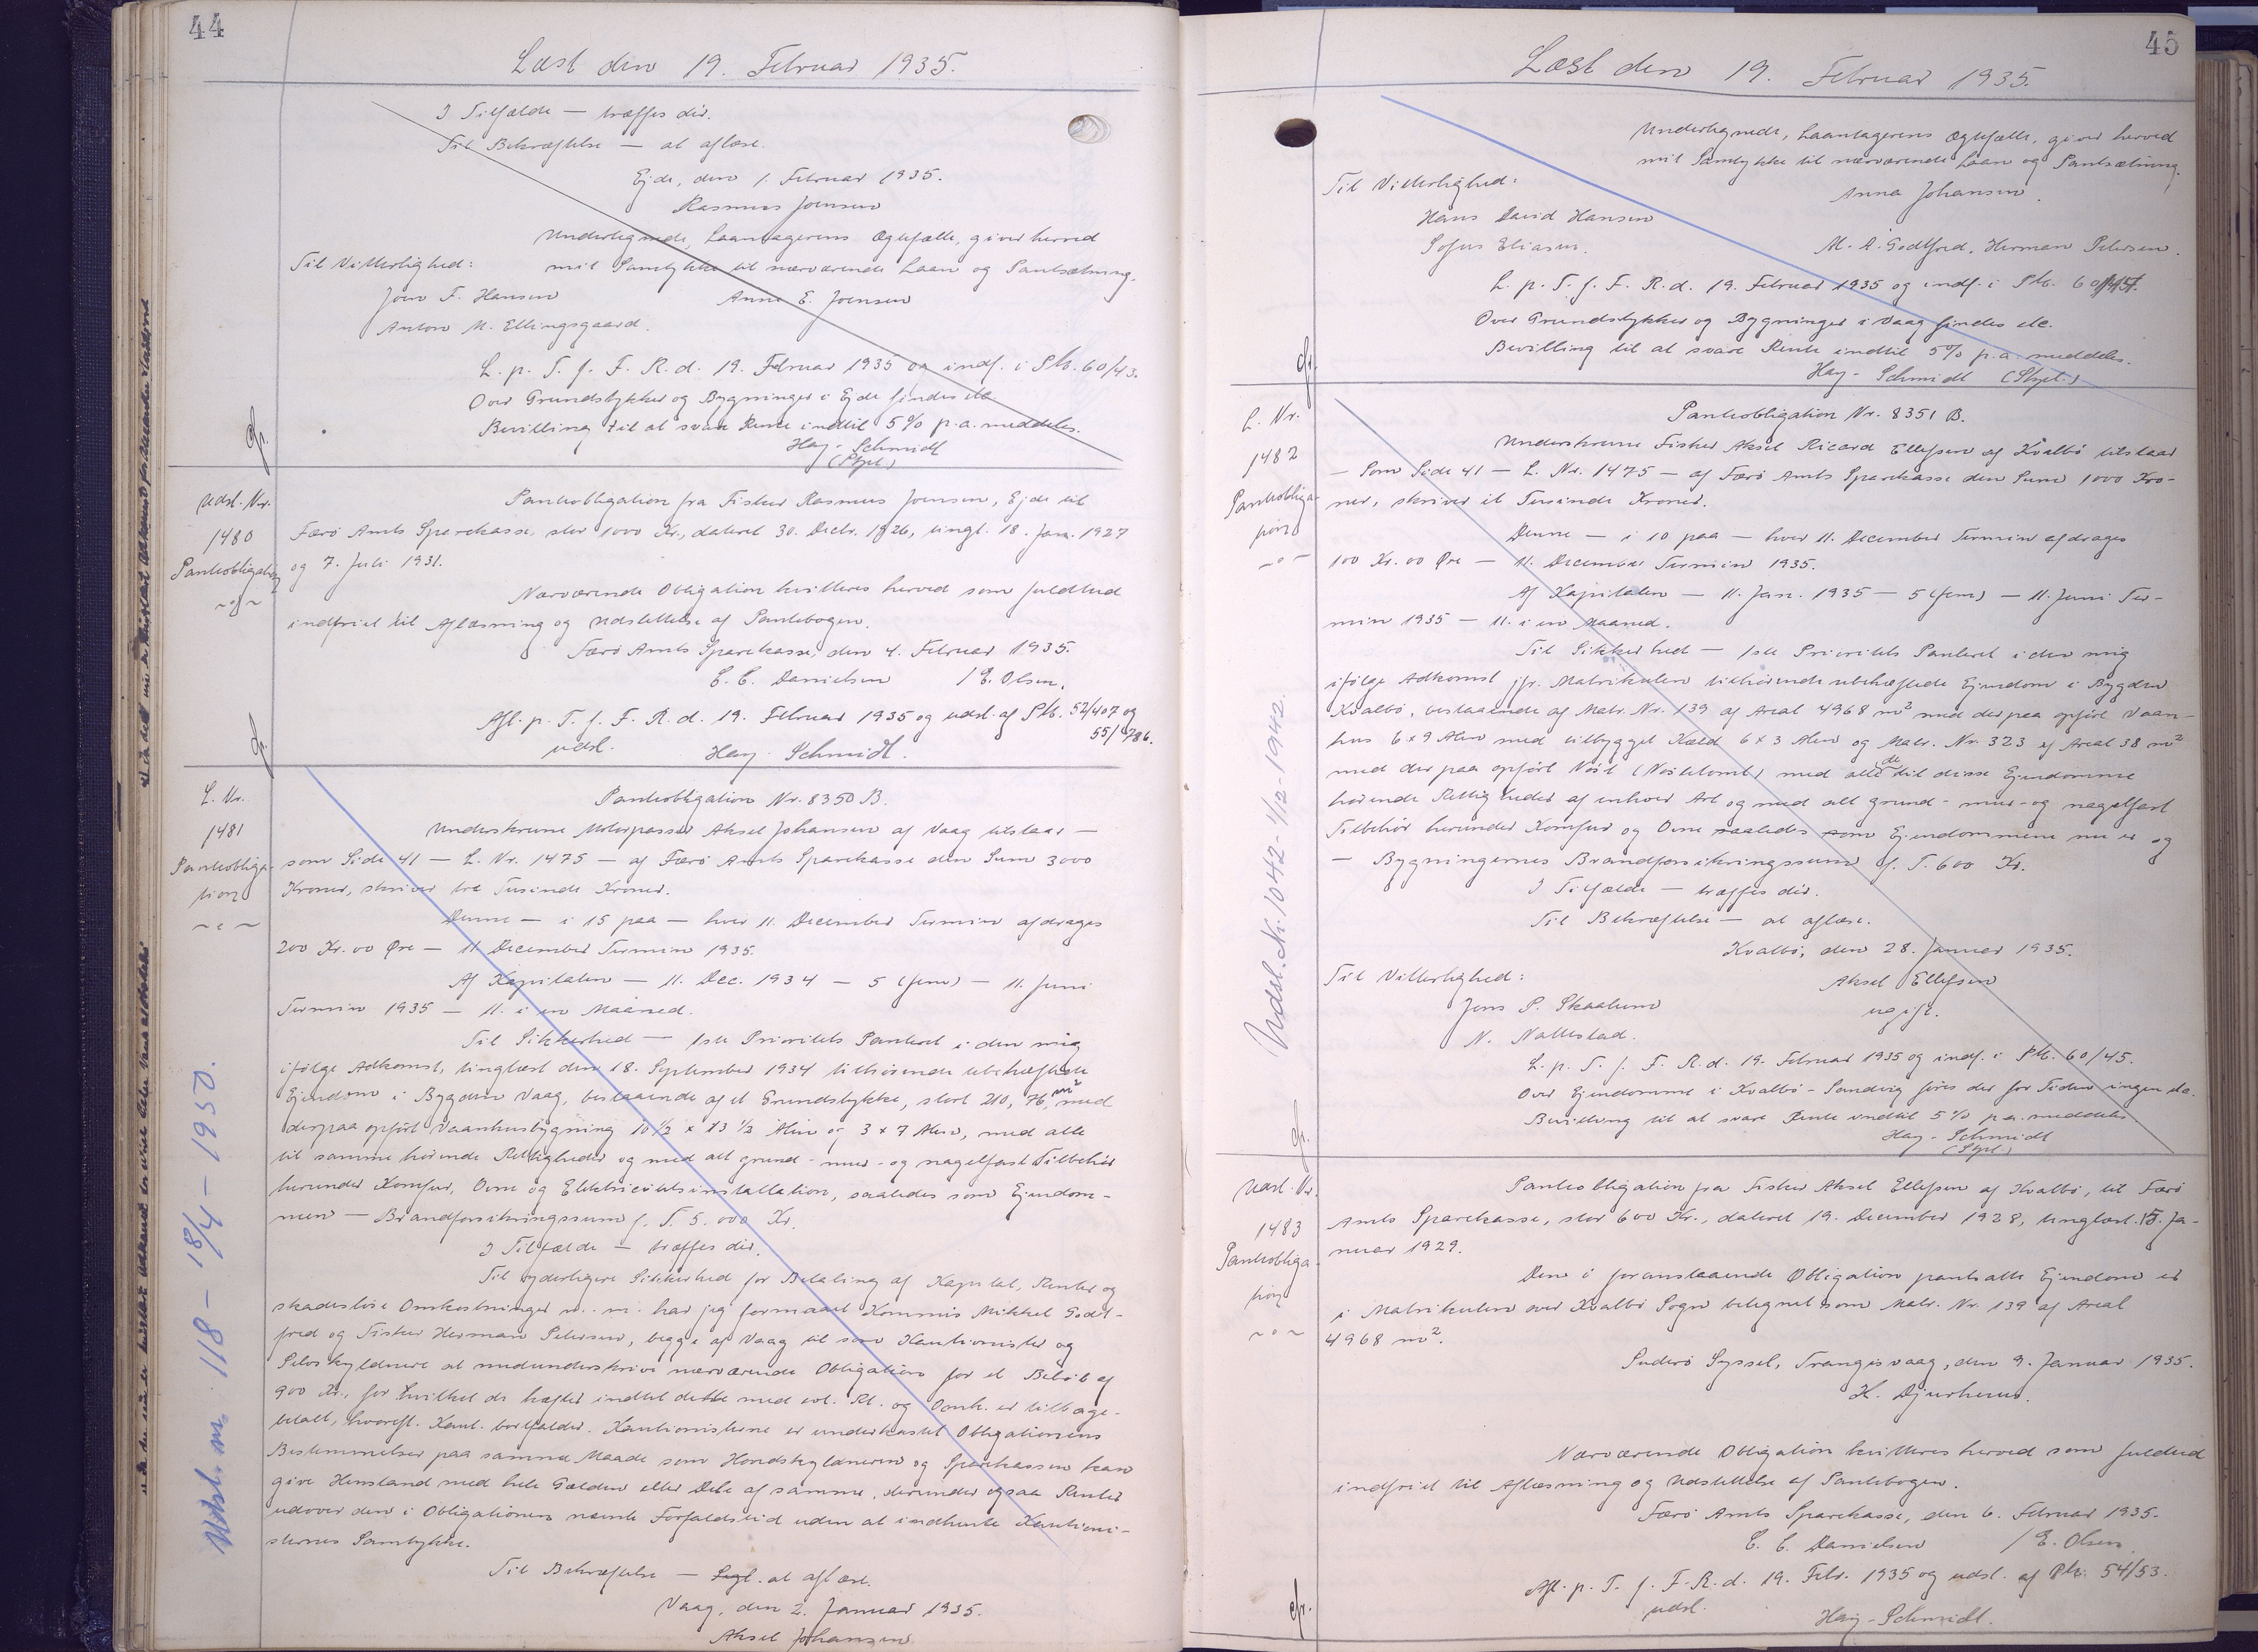 44
Læst den 19. Februar 1935.
I Tilfælde — træffes dér.
Til Bekræftelse — at aflæse.
Ejde, den 1. Februar 1935.
Rasmus Joensen
Undertegnede, Laantagerens Ægtefælle, giver herved
Til Vitterlighed: mit Samtykke til nærværende Laan og Pantsætning.
Jens F. Hansen Anna E. Joensen
Anton M. Ellingsgaard.
L. p. T. f. F. R. d. 19. Februar 1935 og indf. i Pb. 60/43.
Over Grundstykker og Bygninger i Ejde findes etc.
Bevilling til at svare Rente indtil 5% p.a. meddeles.
Hay-Schmidt
(Stpl.)
Udsl. Nr.
1480
Pantobligation
Pantobligation fra Fisker Rasmus Joensen, Ejde til
Færø Amts Sparekasse, stor 1000 Kr., dateret 30. Decbr. 1926, tingl. 18. Jan. 1927
og 7. Juli 1931.
Nærværende Obligation kvitteres herved som fuldtud
indfriet til Aflæsning og Udslettelse af Pantebogen.
Færø Amts Sparekasse, den 4. Februar 1935.
C. C. Danielsen / E. Olsen.
Afl. p. T. f. F. R. d. 19. Februar 1935 og udsl. af Pb. 52/407 og
55/786.
udsl. Hay-Schmidt.
L. Nr.
1481
Pantobliga-
tion
Pantobligation Nr. 8350 B.
Underskrevne Motorpasser Aksel Johansen af Vaag tilstaar —
som Side 41 — L. Nr. 1475 — af Færø Amts Sparekasse den Sum 3000
Kroner, skriver tre Tusinde Kroner.
Denne — i 15 paa — hver 11. December Termin afdrages
200 Kr. 00 Øre — 11. December Termin 1935.
Af Kapitalen — 11. Dec. 1934 — 5 (fem) — 11. Juni
Termin 1935 — 11. i en Maaned.
Til Sikkerhed — 1ste Prioritets Panteret i den mig
ifølge Adkomst, tinglæst den 18. September 1934 tilhørende ubehæftede
Ejendom i Bygden Vaag, bestaaende af et Grundstykke, stort 210,76 m² med
derpaa opført Vaanhusbygning 10½ × 13½ Alen og 3 × 7 Alen, med alle
til samme hørende Rettigheder og med alt grund- mur- og nagelfast Tilbehør
herunder Komfur, Ovne og Elektricitetsinstallation, saaledes som Ejendom-
men — Brandforsikringssum f. T. 5.000 Kr.
I Tilfælde — træffes dér.
Til yderligere Sikkerhed for Betaling af Kapital, Renter og
skadesløse Omkostninger m. m. har jeg formaaet Kommis Mikkel Godt-
fred og Fisker Herman Petersen, begge af Vaag til som Kautionister og
Selvskyldnere at medunderskrive nærværende Obligation for et Beløb af
900 Kr., for hvilket de hæfter indtil dette med evt. Rt. og Omk. er tilbage-
betalt, hvoreft. Kaut. bortfalder. Kautionisterne er underkastet Obligationens
Bestemmelser paa samme Maade som Hovedskyldneren og Sparekassen kan
give Henstand med hele Gælden eller Dele af samme, derunder ogsaa Renter
udover den i Obligationen nævnte Forfaldstid uden at indhente Kautioni-
sternes Samtykke.
Til Bekræftelse — at aflæse.
Vaag, den 2. Januar 1935.
Aksel Johansen
Udsl. nr. 118 – 18/4 – 1950.
45
Læst den 19. Februar 1935.
Undertegnede, Laantagerens Ægtefælle, giver herved
mit Samtykke til nærværende Laan og Pantsætning.
Til Vitterlighed: Anna Johansen.
Hans David Hansen
Sofus Eliasen. M. A. Godtfred. Herman Petersen.
L. p. T. f. F. R. d. 19. Februar 1935 og indf. i Pb. 60
Over Grundstykker og Bygninger i Vaag findes etc.
Bevilling til at svare Rente indtil 5% p.a. meddeles.
Hay-Schmidt (Stpl.)
L. Nr.
1482
Pantobliga-
tion
Pantobligation Nr. 8351 B.
Underskrevne Fisker Aksel Ricard Ellefsen af Kvalbø tilstaar
— som Side 41 — L. Nr. 1475 — af Færø Amts Sparekasse den Sum 1000 Kro-
ner, skriver et Tusinde Kroner.
Denne — i 10 paa — hver 11. December Termin afdrages
100 Kr. 00 Øre — 11. December Termin 1935.
Af Kapitalen — 11. Jan. 1935 — 5 (fem) — 11. Juni Ter-
min 1935 — 11. i en Maaned.
Til Sikkerhed — 1ste Prioritets Panteret i den mig
ifølge Adkomst jfr. Matrikulen tilhørende ubehæftede Ejendom i Bygden
Kvalbø, bestaaende af Matr. Nr. 139 af Areal 4968 m² med derpaa opført Vaan-
hus 6 × 9 Alen med tilbygget Kæld 6 × 3 Alen og Matr. Nr. 323 af Areal 38 m²
med derpaa opført Nøst (Nøstetomt) med alle de til disse Ejendomme
hørende Rettigheder af enhver Art og med alt grund- mur- og nagelfast
Tilbehør herunder Komfur og Ovne saaledes som Ejendommene nu er og
— Bygningernes Brandforsikringssum f. T. 600 Kr.
I Tilfælde — træffes dér.
Til Bekræftelse — at aflæse.
Kvalbø, den 28. Januar 1935.
Til Vitterlighed: Aksel Ellefsen
Jens P. Skaalum ugift.
N. Nattestad.
L. p. T. f. F. R. d. 19. Februar 1935 og indf. i Pb. 60/45.
Over Ejendomme i Kvalbø-Sandvig føres der for Tiden ingen
Bevilling til at svare Rente indtil 5% p.a. meddeles.
Hay-Schmidt
(Stpl.)
Udsl. Nr. 1042 - 1/12 - 1942.
Udsl. Nr.
1483
Pantobliga-
tion
Pantobligation fra Fisker Aksel Ellefsen af Kvalbø, til Færø
Amts Sparekasse, stor 600 Kr., dateret 19. December 1928, tinglæst 15. Ja-
nuar 1929.
Den i foranstaaende Obligation pantsatte Ejendom er
i Matrikulen over Kvalbø Sogn betegnet som Matr. Nr. 139 af Areal
4968 m².
Suderø Syssel, Trangisvaag, den 9. Januar 1935.
K. Djurhuus.
Nærværende Obligation kvitteres herved som fuldtud
indfriet til Aflæsning og Udslettelse af Pantebogen.
Færø Amts Sparekasse, den 6. Februar 1935.
C. C. Danielsen / E. Olsen
Afl. p. T. f. F. R. d. 19. Febr. 1935 og udsl. af Pb. 54/53.
udsl. Hay-Schmidt.